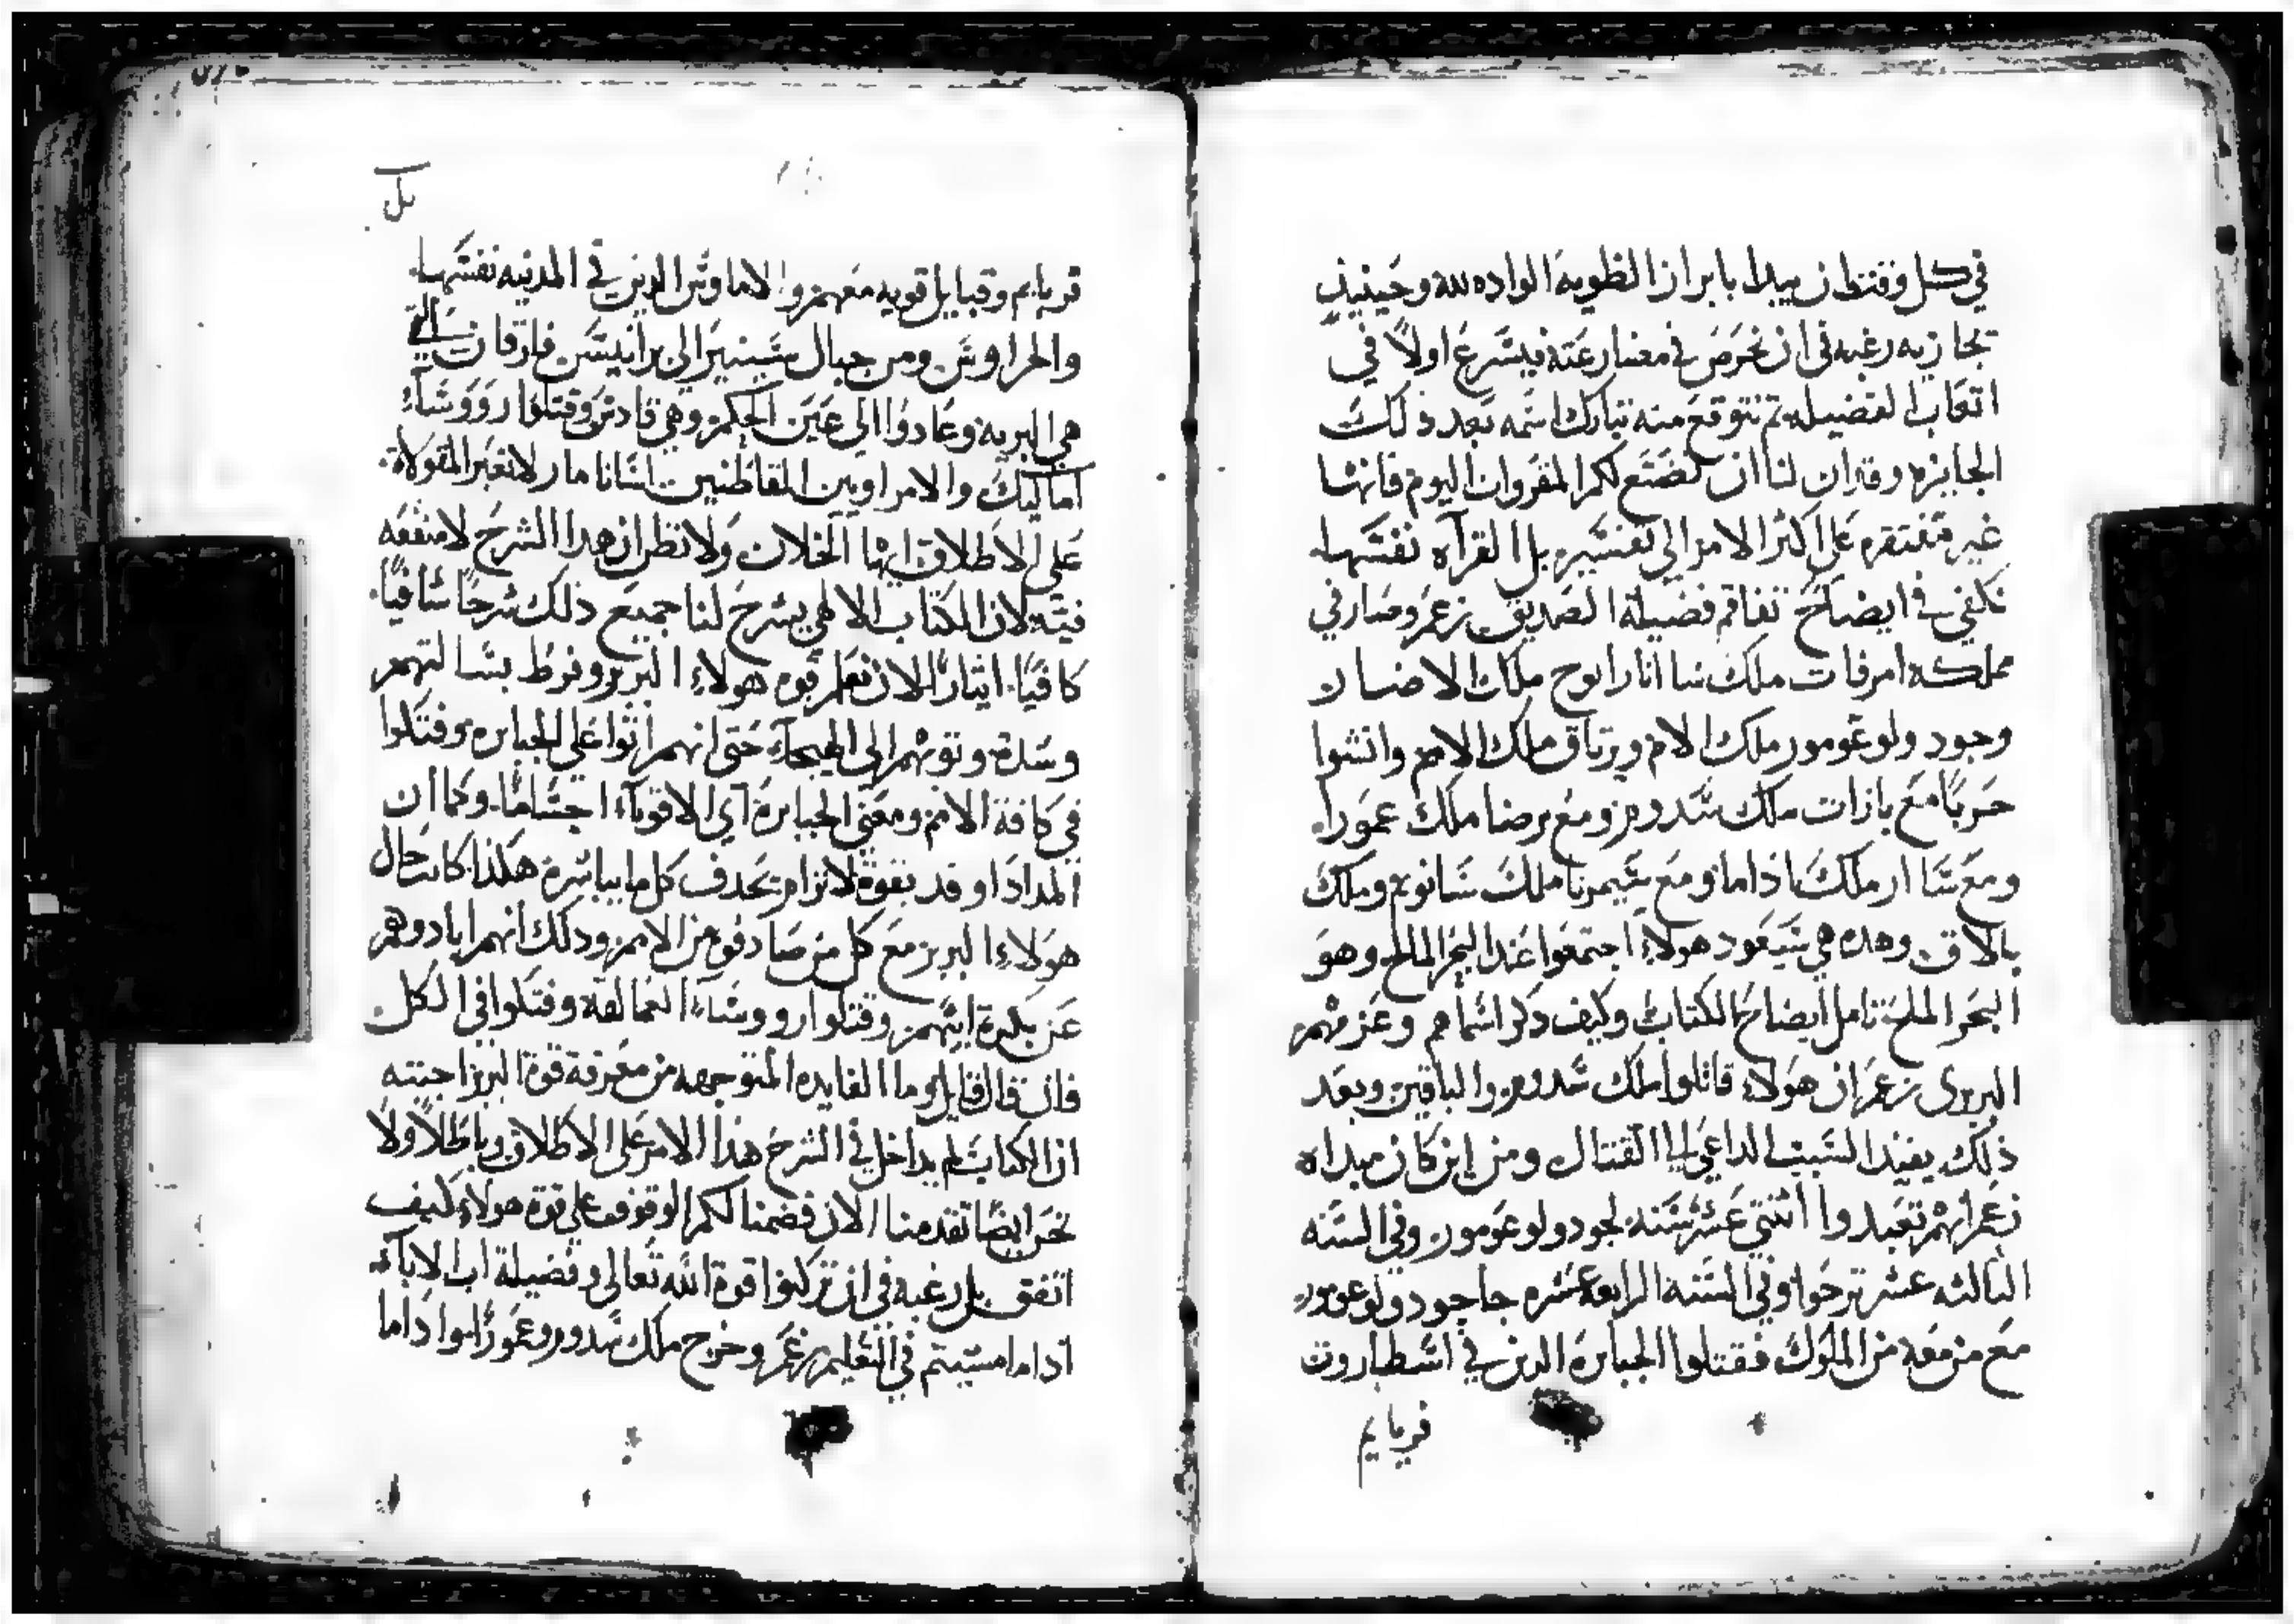 في كل وقتط ان يبدا بابراز الطويه الواده لله وحينيذ
تجازيه رغبه في ان نحرص في مضارعته فيشرع اولاً في
اتعاب الفضيله ثم نتوقع منه تبارك اسمه بعد ذلك
الجايزه وقد ان لنا ان نضع لكم المقروات اليوم فانها
غير مفتقره على اكثر الامر الى تفسير بل القرآه نفسها
تكفي في ايضاح تفاقم فضيلة الصديق زعم وصار في
مملكه امرفات ملك شاانار اريوح ملك الاضسار
وجود ولوعومور ملك الام وترتاق ملك الامم وانشوا
حربًا مع بازات ملك سدوم ومع برضا ملك عمورا
ومع شاار ملك اداما ومع سيمرنا ملك سانويم وملك
بالاق وهده هي سيعود هولاء اجتمعوا عند البحر المالح وهو
البحر الملح تامل ايضاح الكتاب وكيف ذكر اسماهم وعزمهم
البربري زعم ان هولاء قاتلوا ملك سدوم والباقين وبعد
ذلك يفيد السبب الداعي الى القتال ومن اين كان مبداه
زعم انهم تعبدوا اثنتي عشر سنه لجودولوعومور وفي السنه
الثالثه عشر ترحوا وفي السنه الرابعه عشره جا جودولوعومور
مع من معه من الملوك فقتلوا الجبابرة الدين في اشطاروت
قريايم
بل
قريايم وقبايل قويه معهم والاماوس الدين في المدنيه نفسها
والحراوس ومن جبال سيير الى برانيس فارقان التي
هي البريه وعادوا الى عين الحكم وهي قادس وقتلوا رووساء
اماليك والامراوين القاطنين اسانامار لا تعبر المقولات
على الاطلاق ايها الخلان ولا تظن ان هدا الشرح لا منفعه
فيه لان الكتاب الالهي يشرح لنا جميع ذلك شرحًا شافيًا
كافيًا ايثارًا لان نعلم قوه هولاء البربر وفرط بسالتهم
وشدة وتوبهم الى الهيجاء حتى انهم اتوا على الجبابره وقتلوا
في كافة الامم ومعنى الجبابرة اي الاقوياء اجسامًا وكما ان
المداد اوفد بقوة لا تزام تحدف كل ما يباشره هكذا كانت حال
هولاء البربر مع كل من صادفوه من الامم ودلك انهم ابادوهم
عن بكرة ابيهم وقتلوا رووساء العمالقه وقتلوا في الكل
فان قال قايل وما الفايده المتوجهه من معرفة قوة البربر اجبته
ان الكتاب لم يداخل في الشرح هذا الامر على الاطلاق وباطلاً ولا
نحن ايضًا تقدمنا الان فضمنا لكم الوقوف على قوة هولاء كيف
اتفق بل رغبه في ان تركنوا قوة الله تعالى وفضيلة اب الاباء
اداما مشيتم في التعليم زعم وخرج ملك سدوم وعمورا واداما